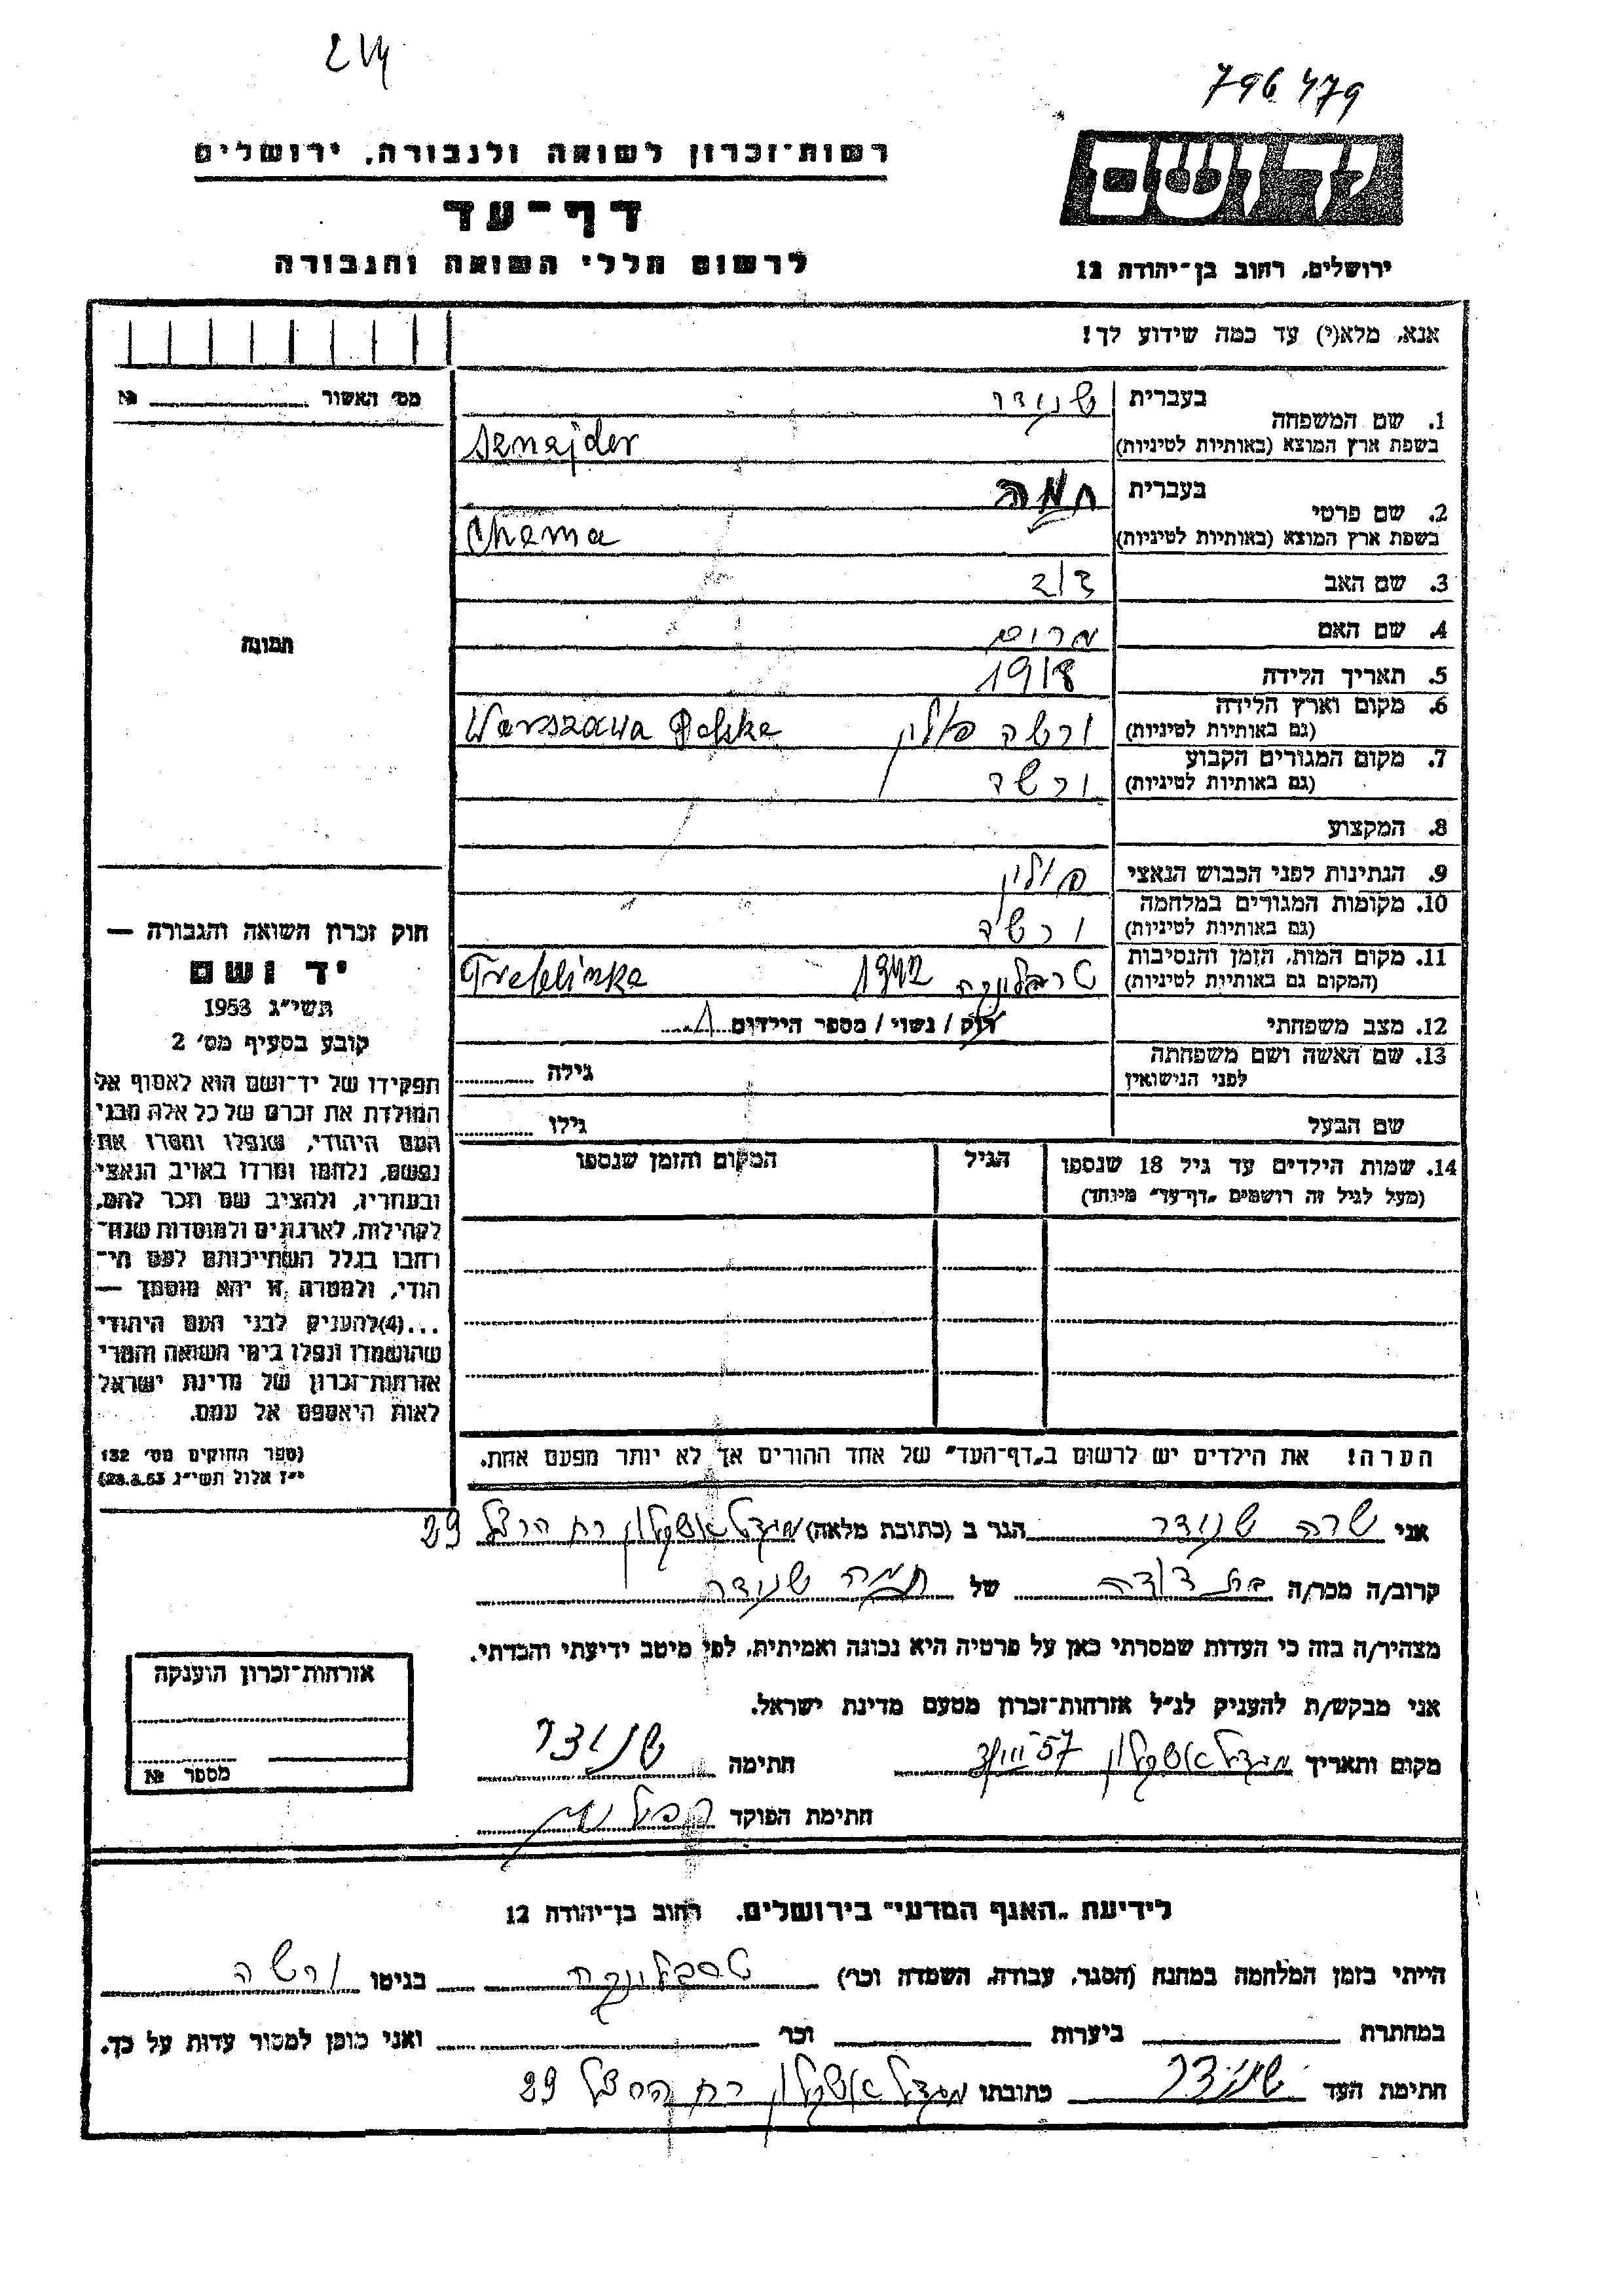 214
796479
רשות־זכרון לשואה ולגבורה, ירושלים
יד ושם
דף־עד
לרשום חללי השואה והגבורה
ירושלים, רחוב בן־יהודה 12
אנא, מלא(י) עד כמה שידוע לך!
מס׳ האשור № 
1. שם המשפחה
בעברית שנידר
בשפת ארץ המוצא (באותיות לטיניות) Sznajder
2. שם פרטי
בעברית חמה
בשפת ארץ המוצא (באותיות לטיניות) Chema
3. שם האב דוד
4. שם האם מרים
5. תאריך הלידה 1918
6. מקום וארץ הלידה (גם באותיות לטיניות) ורשה פולין Warszawa Polska
7. מקום המגורים הקבוע (גם באותיות לטיניות) ורשה
8. המקצוע
9. הנתינות לפני הכבוש הנאצי פולין
10. מקומות המגורים במלחמה (גם באותיות לטיניות) ורשה
11. מקום המות, הזמן והנסיבות (המקום גם באותיות לטיניות) טרבלינקה 1942 Treblinka
12. מצב משפחתי רוק / נשוי / מספר הילדים 1
13. שם האשה ושם משפחתה לפני הנישואין גילה
שם הבעל גילו
14. שמות הילדים עד גיל 18 שנספו
(מעל לגיל זה רושמים „דף־עד״ מיוחד)
הגיל
המקום והזמן שנספו
הערה! את הילדים יש לרשום ב„דף־העד״ של אחד ההורים אך לא יותר מפעם אחת.
תמונה
חוק זכרון השואה והגבורה —
יד ושם
תשי״ג 1953
קובע בסעיף מס׳ 2
תפקידו של יד־ושם הוא לאסוף אל
המולדת את זכרם של כל אלה מבני
העם היהודי, שנפלו ומסרו את
נפשם, נלחמו ומרדו באויב הנאצי
ובעוזריו, ולהציב שם וזכר להם,
לקהילות, לארגונים ולמוסדות שנח־
רבו בגלל השתייכותם לעם הי־
הודי, ולמטרה זו יהא מוסמך —
...(4)להעניק לבני העם היהודי
שהושמדו ונפלו בימי השואה והמרי
אזרחות־זכרון של מדינת ישראל
לאות היאספם אל עמם.
(ספר החוקים מס׳ 132
י״ז אלול תשי״ג 28.8.53)
אני שרה שנידר הגר ב (כתובת מלאה) מגדל אשקלון רח הרצל 29
קרוב/ה מכר/ה בת דודה של חמה שנידר
מצהיר/ה בזה כי העדות שמסרתי כאן על פרטיה היא נכונה ואמיתית, לפי מיטב ידיעתי והכרתי.
אני מבקש/ת להעניק לנ״ל אזרחות־זכרון מטעם מדינת ישראל.
מקום ותאריך מגדל אשקלון 3/VIII 57 חתימה שנידר
חתימת הפוקד
אזרחות־זכרון הוענקה
מספר №
לידיעת „האגף המדעי״ בירושלים, רחוב בן־יהודה 12
הייתי בזמן המלחמה במחנה (הסגר, עבודה, השמדה וכו׳) טרבלינקה בגיטו ורשה
במחתרת ביערות וכו׳ ואני מוכן למסור עדות על כך.
חתימת העד שנידר כתובתו מגדל אשקלון רח הרצל 29